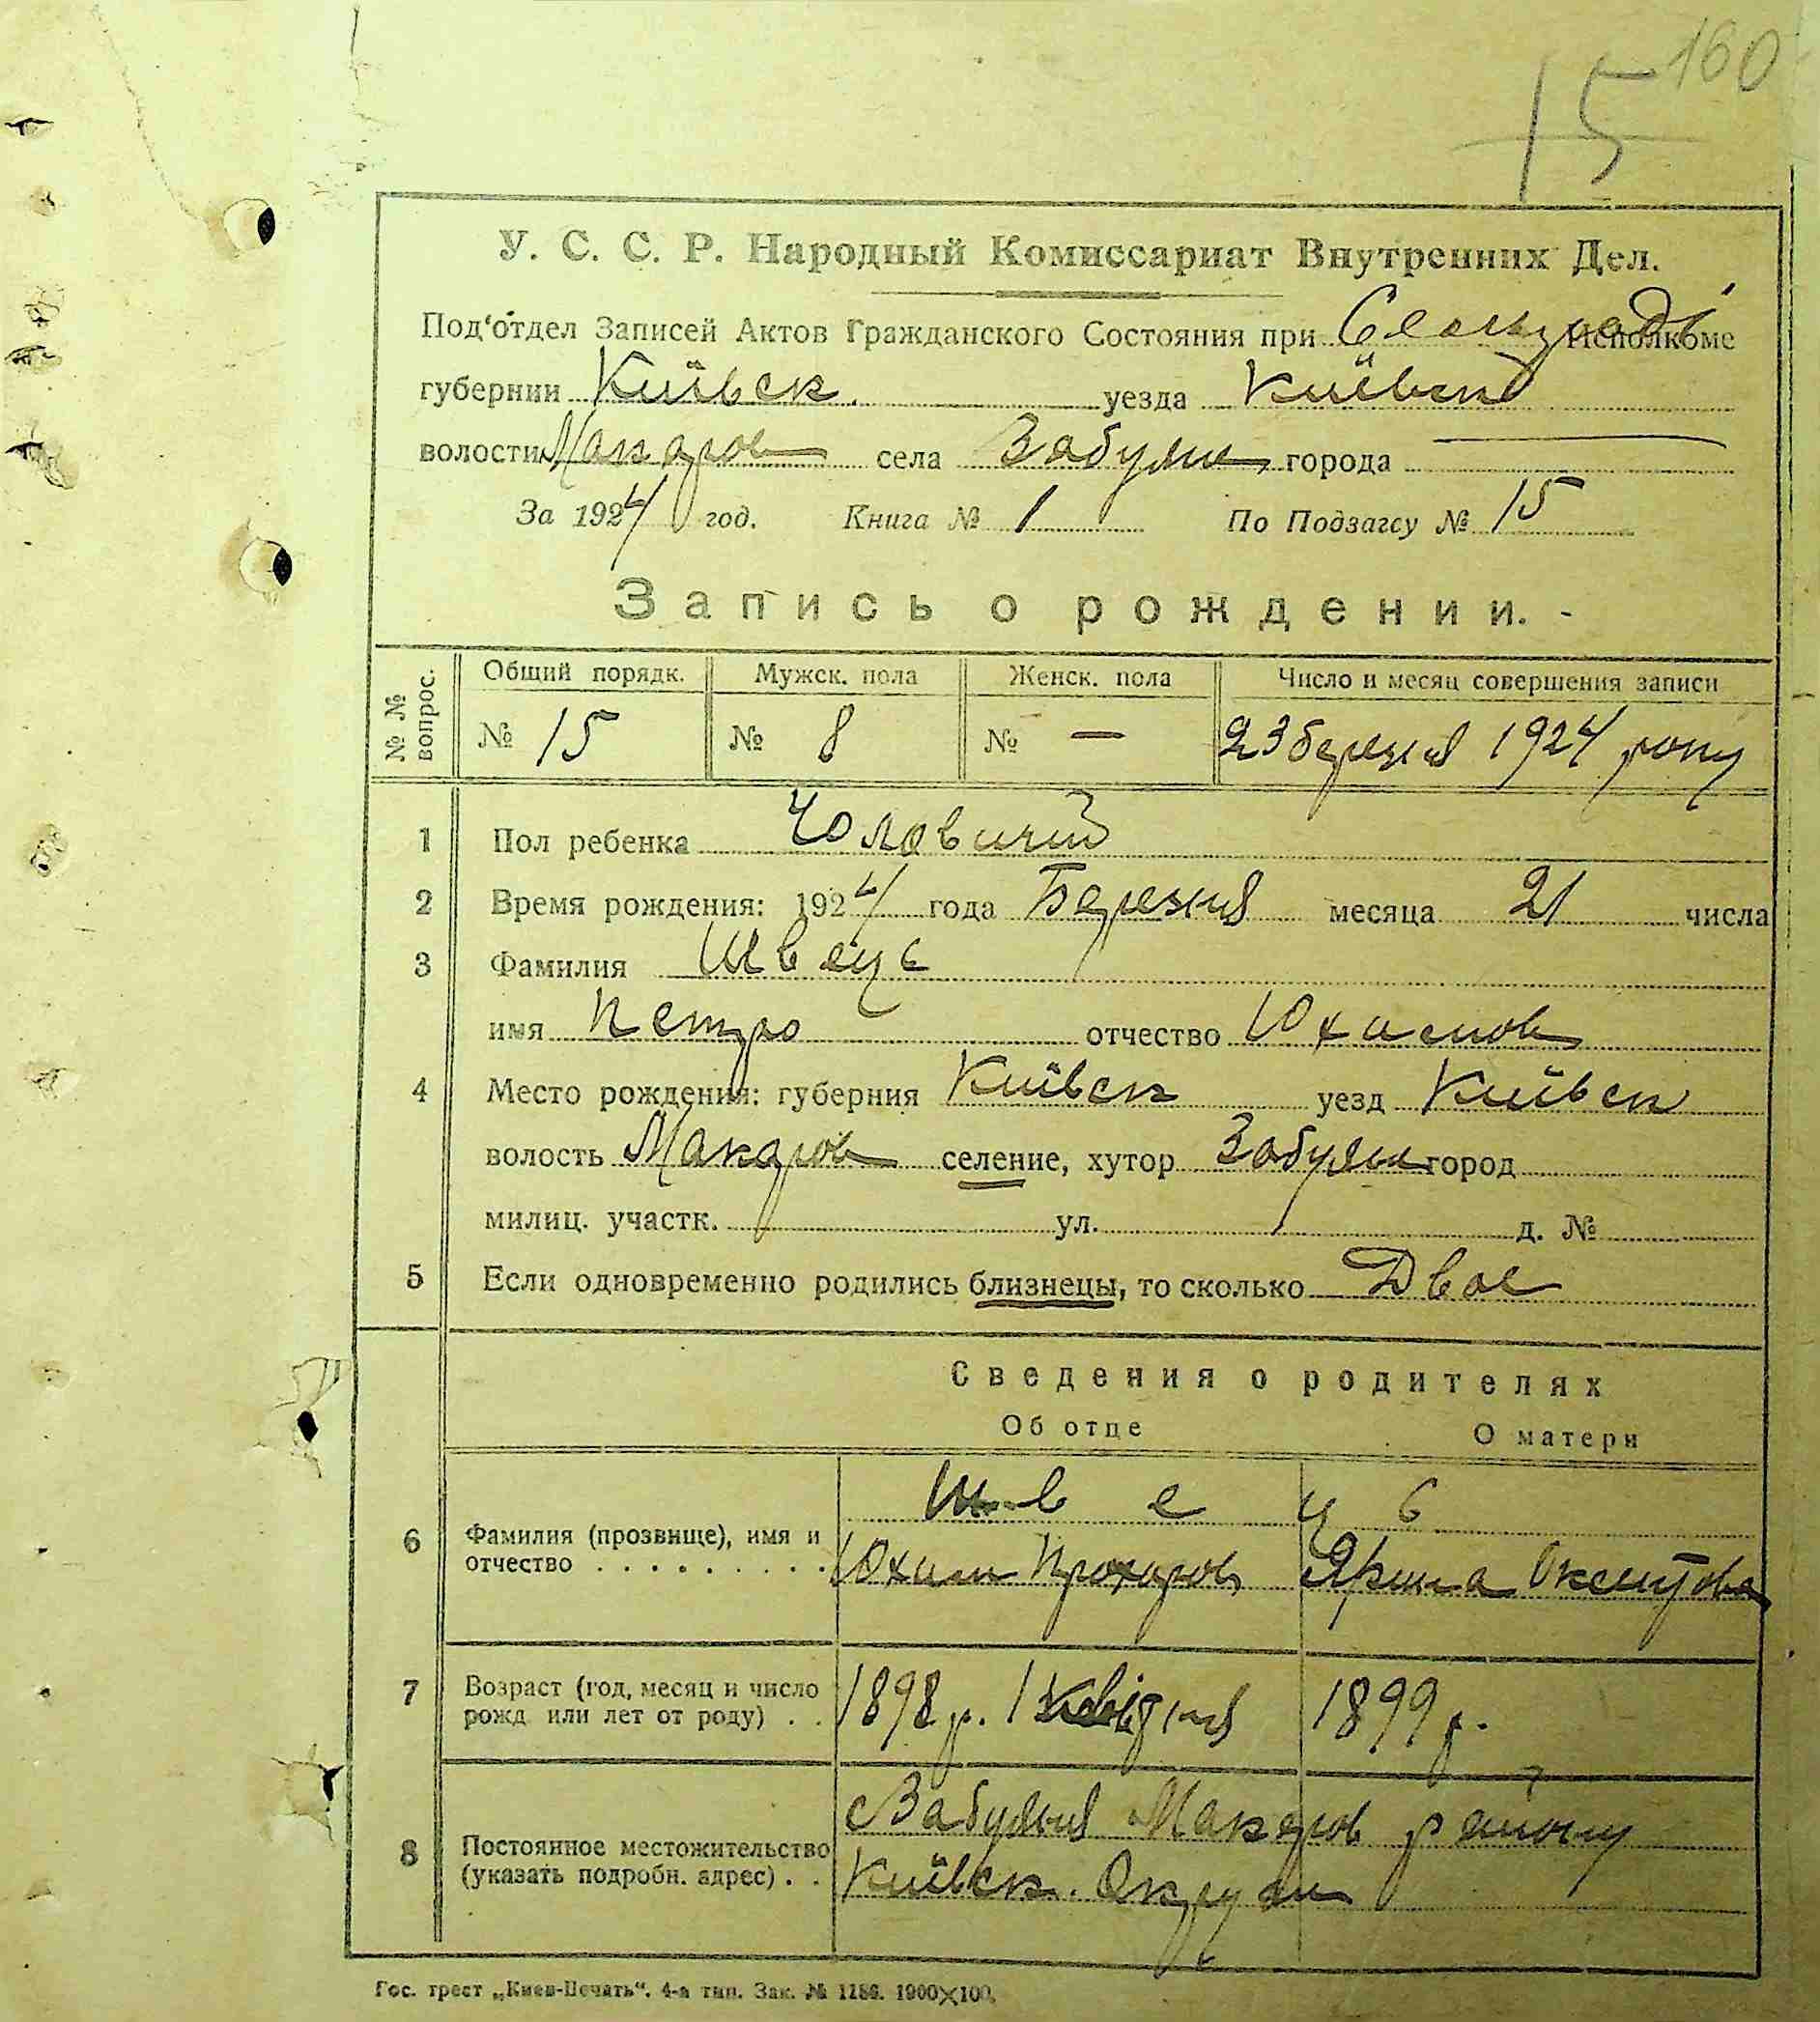 160
15
У. С. С. Р. Народный Комиссариат Внутренних Дел.
Под'отдел Записей Актов Гражданского Состояния при Сельраді Исполкоме
губернии Київськ. уезда Київськ
волости Макаров села Забуяння города —
За 1924 год. Книга № 1 По Подзагсу № 15
Запись о рождении.
№ № вопрос. Общий порядк. Мужск. пола Женск. пола Число и месяц совершения записи
№ 15 № 8 № — 23 березня 1924 року
1 Пол ребенка Чоловичий
2 Время рождения: 1924 года Березня месяца 21 числа
3 Фамилия Швець
имя Петро отчество Юхимов
4 Место рождения: губерния Київськ уезд Київськ
волость Макаров селение, хутор Забуян город
милиц. участк. ул. д. №
5 Если одновременно родились близнецы, то сколько Двое
Сведения о родителях
Об отце О матери
Швець
6 Фамилия (прозвище), имя и
отчество . . . . . . . . . Юхим Прохоров Ярина Оксентова
7 Возраст (год, месяц и число
рожд или лет от роду) . . 1898 р. 1 квітня 1899 р.
8 Постоянное местожительство
(указать подробн. адрес) . . с Забуяння Макаров району
Київск. Округи
Гос. трест „Киев-Печать“. 4-а тип. Зак. № 1186. 1000×100.